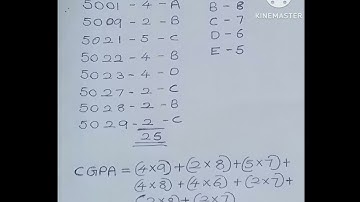 5001 - 4 - A
5009 - 2 - B
5021 - 5 - C
5022 - 4 - B
5023 - 4 - D
5027 - 2 - C
5028 - 2 - B
5029 - 2 - C
25
B - 8
C - 7
D - 6
E - 5
KINEMASTER
CGPA = (4×9) + (2×8) + (5×7) +
(4×8) + (4×6) + (2×7) +
(2×8) + (2×7)